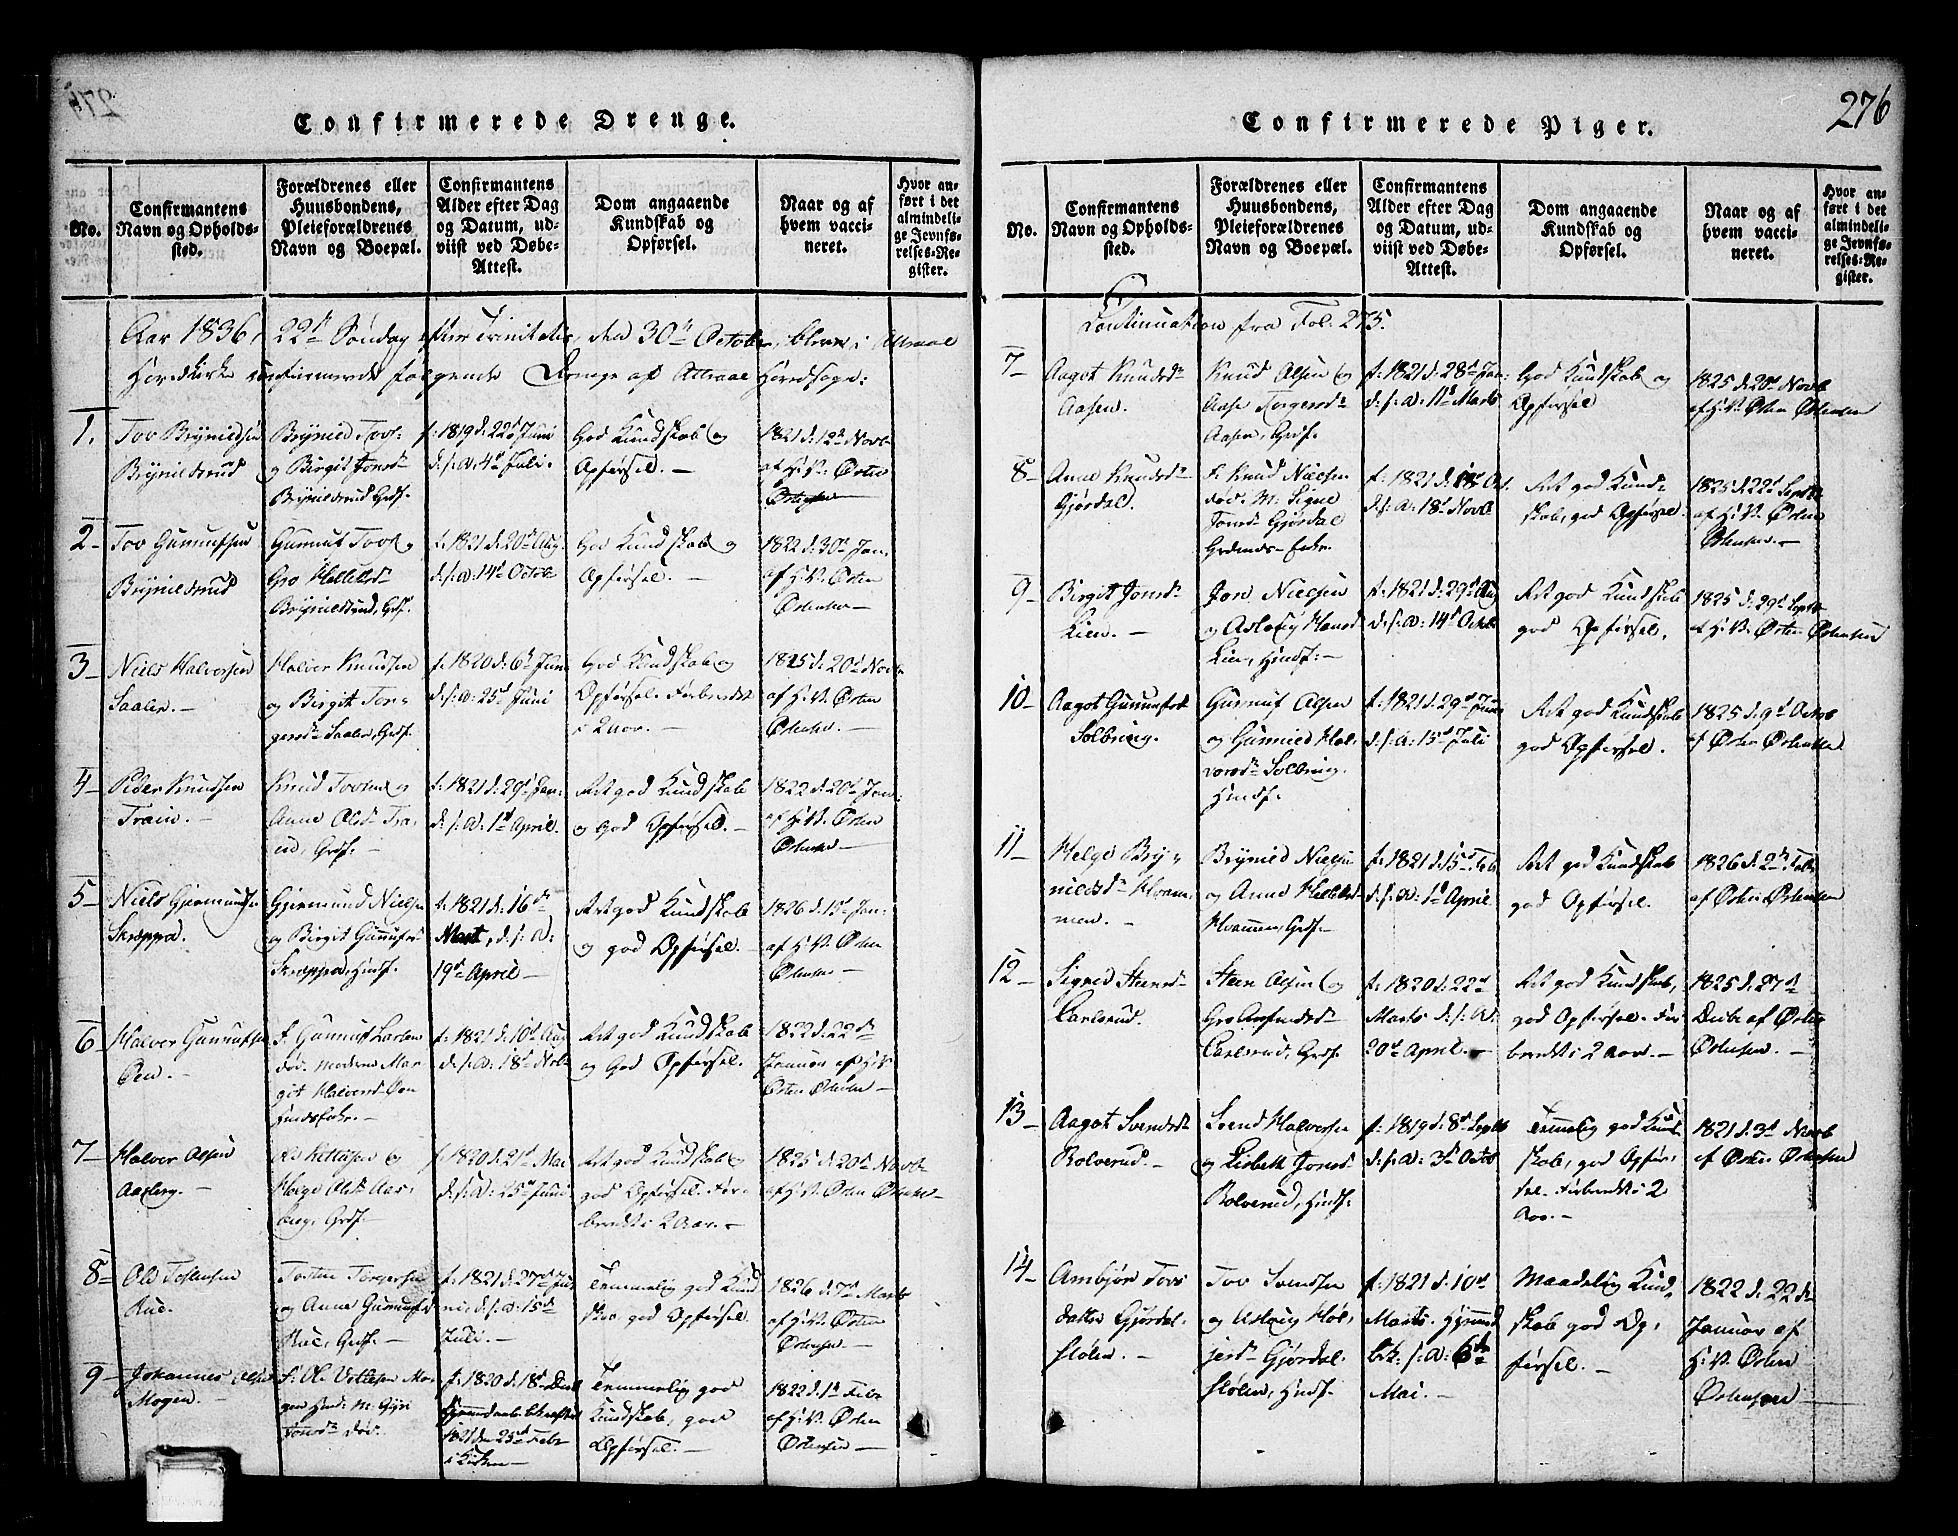 276
Confirmerede Drenge.
No.
Confirmantens
Navn og Opholds-
sted.
Forældrenes eller
Huusbondens,
Pleieforældrenes
Navn og Boepæl.
Confirmantens
Alder efter Dag
og Datum, ud-
viist ved Døbe-
Attest.
Dom angaaende
Kundskab og
Opførsel.
Naar og af
hvem vacci-
neret.
Hvor an-
ført i det
almindeli-
ge Jevnfø-
relses-Re-
gister.
Aar 1836, 22de Søndag efter Trinitatis, den 30te October, bleve i Attraae
Hovedkirke confirmerede følgende Drenge af Attraae Hovedsogn:
1.
Tov Brynildsen
Brynildsrud
Brynild Tovs:
og Birgit Jonsdr
Brynildsrud Grdf.
f: 1819 d: 22de Juni
d:/:a: 4de Juli.
God Kundskab og
Opførsel. —
1821 d: 12te Novb
af H: V: Østen
Østensen —
2 —
Tov Gunnufsen
Brynildsrud
Gunnuf Tovs: og
Gro Kittilsdr
Brynildsrud, Grdf.
f: 1821 d: 20de Aug
d:/:a: 14de Octob
God Kundskab og
Opførsel. —
1822 d: 30te Jan:
af H: V: Østen
Østensen —
3 —
Niels Halvorsen
Saalen. —
Halvor Knudsen
og Birgit Tor-
gersdr Saalen, Grdf.
f: 1820 d: 6te Juni
d:/:a: 25de Juni
God Kundskab og
Opførsel. Forberedt
i 2 Aar. —
1825 d: 20de Novb
af H: V: Østen
Østensen —
4 —
Peder Knudsen
Traen. —
Knud Tovsen og
Anne Olsdr Tra-
en, Grdf. —
f: 1821 d: 29de Jan:
d:/:a: 1ste April.
Ret god Kundskab
og god Opførsel. —
1822 d: 20de Jan:
af H: V: Østen
Østensen —
5 —
Niels Gjermundsen
Skrappa.
Gjermund Nielsen
og Birgit Gunnufsdr
Skrappa, Huusf.
f: 1821 d: 16de
Mart, d:/:a:
19de April —
Ret god Kundskab
og god Opførsel. —
1826 d: 15de Jan:
af H: V: Østen
Østensen —
6 —
Halvor Gunnufsen
Øen. —
F. Gunnuf Larsen
død. Moderen Mar-
git Halvorsdr Øen
Huusfolk. —
f: 1821 d: 10de Aug
d:/:a: 18de Novb
Ret god Kundskab
og God Opførsel.
1822 d: 22de
Januar af H: V:
Østen Østensen —
7 —
Halvor Olsen
Aasberg. —
Ole Kittilsen og
Helge Olsdr Aas-
berg, Grdf. —
f: 1820 d: 21de Mai
d:/:a: 25de Juni
Ret god Kundskab og
god Opførsel. For-
beredt i 2 Aar. —
1825 d: 20de Novb
af H: V: Østen Østensen —
8 —
Ole Tostensen
Rue.
Tosten Torgersen
og Anne Gunnufsdr
Rue, Grdf. —
f: 1821 d: 27de Ju-
ni d:/:a: 15de
Juli. —
Temmelig god Kund-
skab god Opførsel
1826 d: 7de Marts
af H: V: Østen
Østensen —
9 —
Johannes Olsen
Mogen. —
død.
f: 1820 d: 18de Decb
1821 den 25de Febr
i Kirken —
Temmelig god
Kundskab, god
Opførsel. —
1822 d: 1ste Febr
af H: V: Østen
Østensen —
Confirmerede Piger.
No.
Confirmantens
Navn og Opholds-
sted.
Forældrenes eller
Huusbondens,
Pleieforældrenes
Navn og Boepæl.
Confirmantens
Alder efter Dag
og Datum, ud-
viist ved Døbe-
Attest.
Dom angaaende
Kundskab og
Opførsel.
Naar og af
hvem vacci-
neret.
Hvor an-
ført i det
almindeli-
ge Jevnfø-
relses-Re-
gister.
Continuation fra Fol: 275.
7 —
Aagot Knudsdr
Aasen.
Knud Olsen og
Aase Torgersdr
Aasen, Grdf.
f: 1821 d: 28de Jan:
d:/:a: 11te Marts
God Kundskab og
Opførsel
1825 d: 20de Novb
af H: V: Østen Østensen
8 —
Anne Knudsdr
Gjørdal.
F. Knud Nielsen
død. M: Signe
Jonsdr Gjørdal
f: 1821 d: 18de Oct.
d:/:a: 18de Novb
Ret god Kund-
skab, god Opførsel.
1825 d: 22de Septb
af H: V: Østen
Østensen. —
9 —
Birgit Jonsdr
Lien. —
Jon Nielsen
og Aslaug Hansdr
Lien, Huusf: —
f: 1821 d: 29de Aug
d:/:a: 14de Octob
Ret god Kundskab
god Opførsel.
1825 d: 29de Septb
af H: V: Østen Østensen
10 —
Aagot Gunnufsdr
Solbring.
Gunnuf Olsen
og Gunnild Hal-
vorsdr Solbring.
Huusf.
f: 1821 d: 29de Juni
d:/:a: 15de Juli
Ret god Kundskab
god Opførsel.
1825 d: 9de Octob
af Østen Østensen
11 —
Helge Bry-
nildsdr Hvam-
men. —
Brynild Nielsen
og Anne Kittilsdr
Hvammen, Grdf. —
f: 1821 d: 15de Feb
d:/:a: 1ste April
Ret god Kundskab
god Opførsel.
1826 d: 2den Febr
af Østen Østensen
12 —
Sigrid Steensdr
Carlsrud.
Steen Olsen og
Carlsrud, Grdf.
f: 1820 d: 22de
Marts d:/:a:
20de April. —
Ret god Kundskab,
god Opførsel. For-
beredt i 2 Aar. —
1825 d: 27de
Decb af Østen
Østensen. —
13 —
Aagot Svensdr
Bolverud. —
Svend Halvorsen
og Lisbeth Jonsdr
Bolverud, Huusf.
f: 1819 d: 8de Septb
d:/:a: 3de Octob
Temmelig god Kund-
skab, god Opfør-
sel. Forberedt i 2
Aar. —
1821 d: 3de Novb
af Østen Østensen
14 —
Ambjør Tovs-
datter Gjørdal-
stølen. —
Tov Svendsen
og Aslaug Hal-
Gjørdal-
støen, Huusf.
f: 1821 d: 10de
Marts. Hjemmed
bek: /:a: 6te
Mai. —
Maadelig Kund-
skab god Op-
førsel. —
1822 d: 22de
Januar af
H: V: Østen
Østensen —